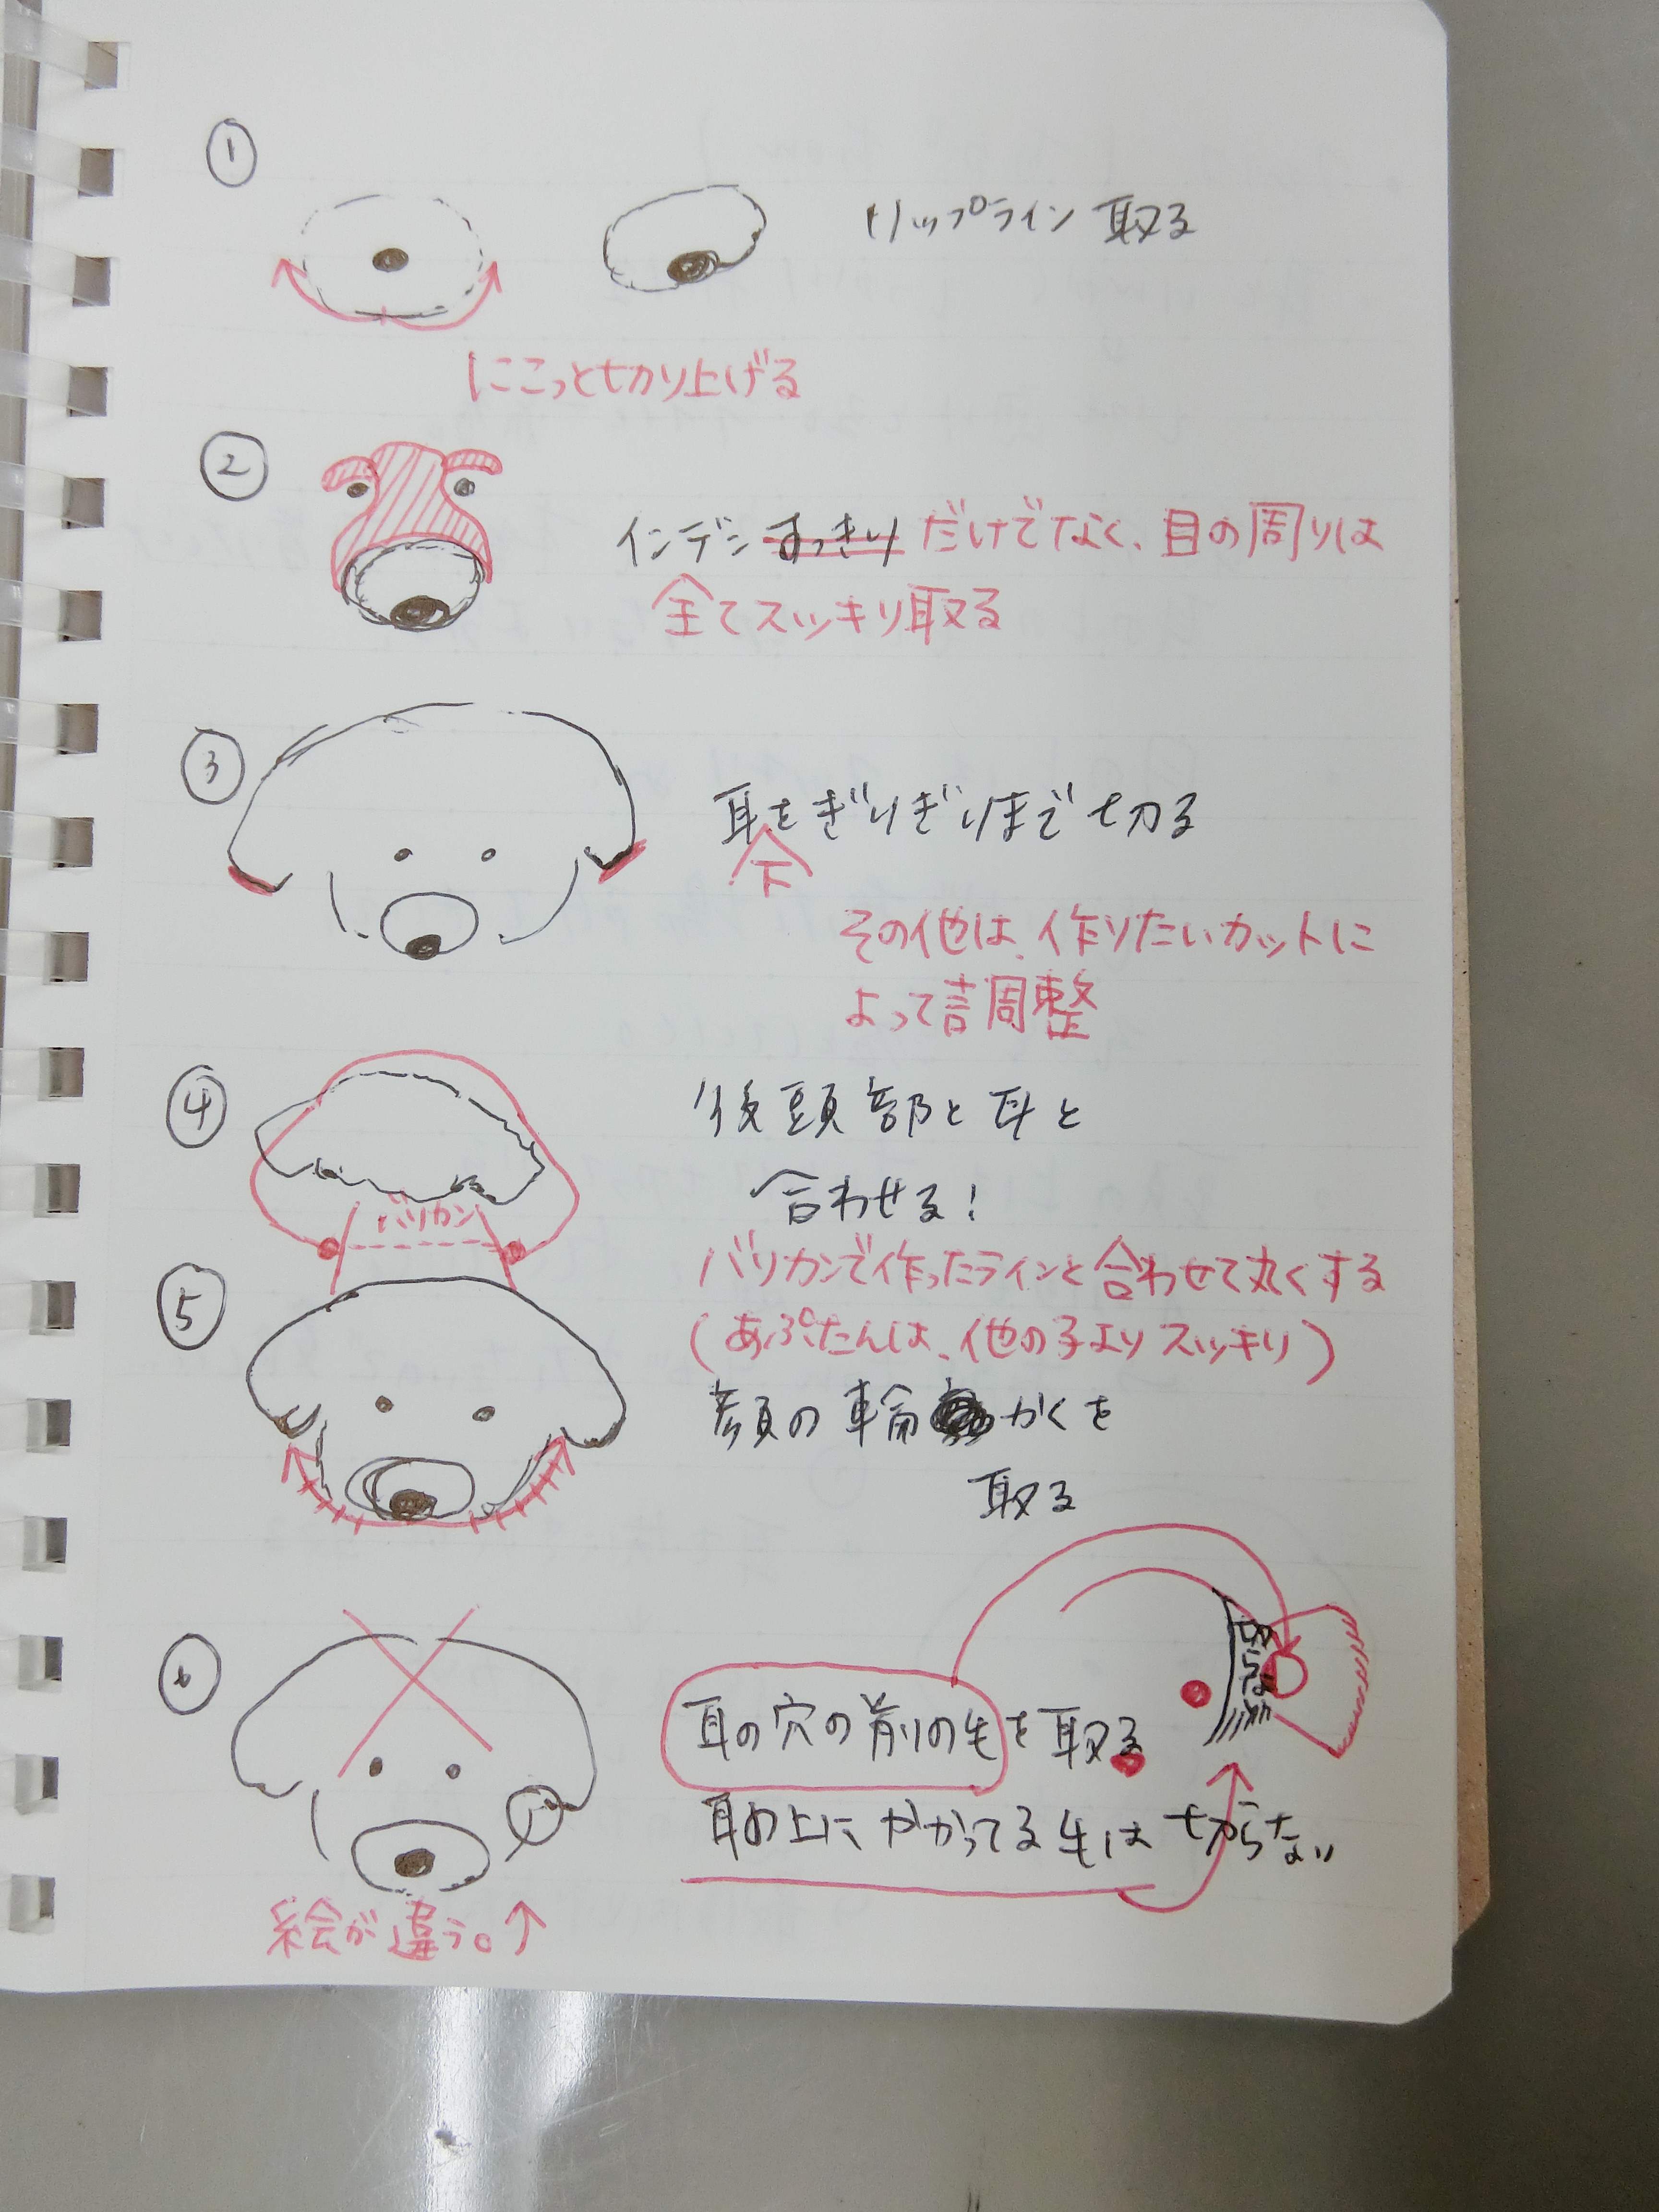 ①
リップライン 取る
にこっと切り上げる
②
インデン すっきり だけでなく、目の周りは
全てスッキリ取る
③
耳をぎりぎりまで切る
下
その他は、作りたいカットに
よって調整
④
後頭部と耳と
合わせる!
バリカン
バリカンで作ったラインと合わせて丸くする
(あぷたんは、他の子よりスッキリ)
⑤
顔の輪かくを
取る
⑥
切らない
耳の穴の前の毛を取る
耳の上にかかってる毛は切らない
絵が違う。↑